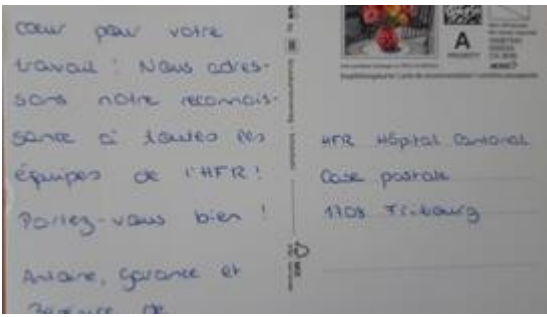 cœur pour votre
travail ! Nous adres-
sons notre reconnais-
sance à toutes les
équipes de l'HFR !
Portez-vous bien !
Antoine, Garance et
de
A
PRIORITY
HFR Hôpital Cantonal
Case postale
1708 Fribourg